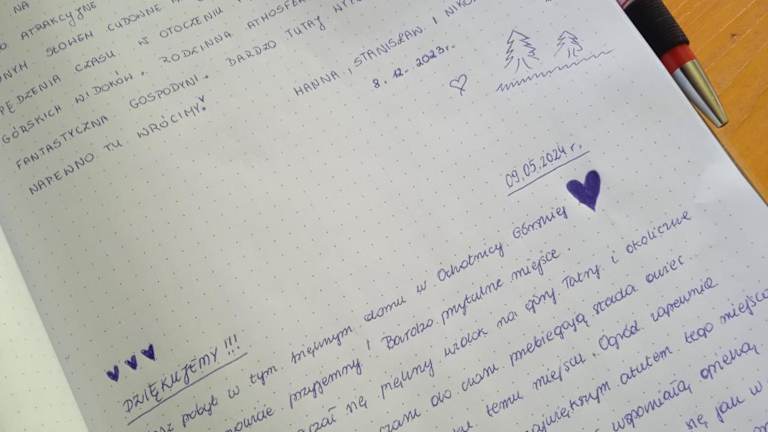 NA
ATRAKCYJNE
SŁOWEM CUDOWNE
PĘDZENIA CZASU W OTOCZENIU
GÓRSKICH WIDOKÓW. RODZINNA ATMOSFERA
FANTASTYCZNA GOSPODYNI. BARDZO TUTAJ
NAPEWNO TU WRÓCIMY!
HANNA, STANISŁAW I
8.12.2023r.
09.05.2024r.
DZIĘKUJEMY!!!
pobyt w tym pięknym domu w Ochotnicy Górnej
przyjemny! Bardzo przytulne miejsce.
się piękny widok na góry Tatry i okoliczne
czasu do czasu przebiegają stada owiec
temu miejscu. Ogród zapewnia
największym atutem tego miejsca
wspaniałą opieką
się jak w